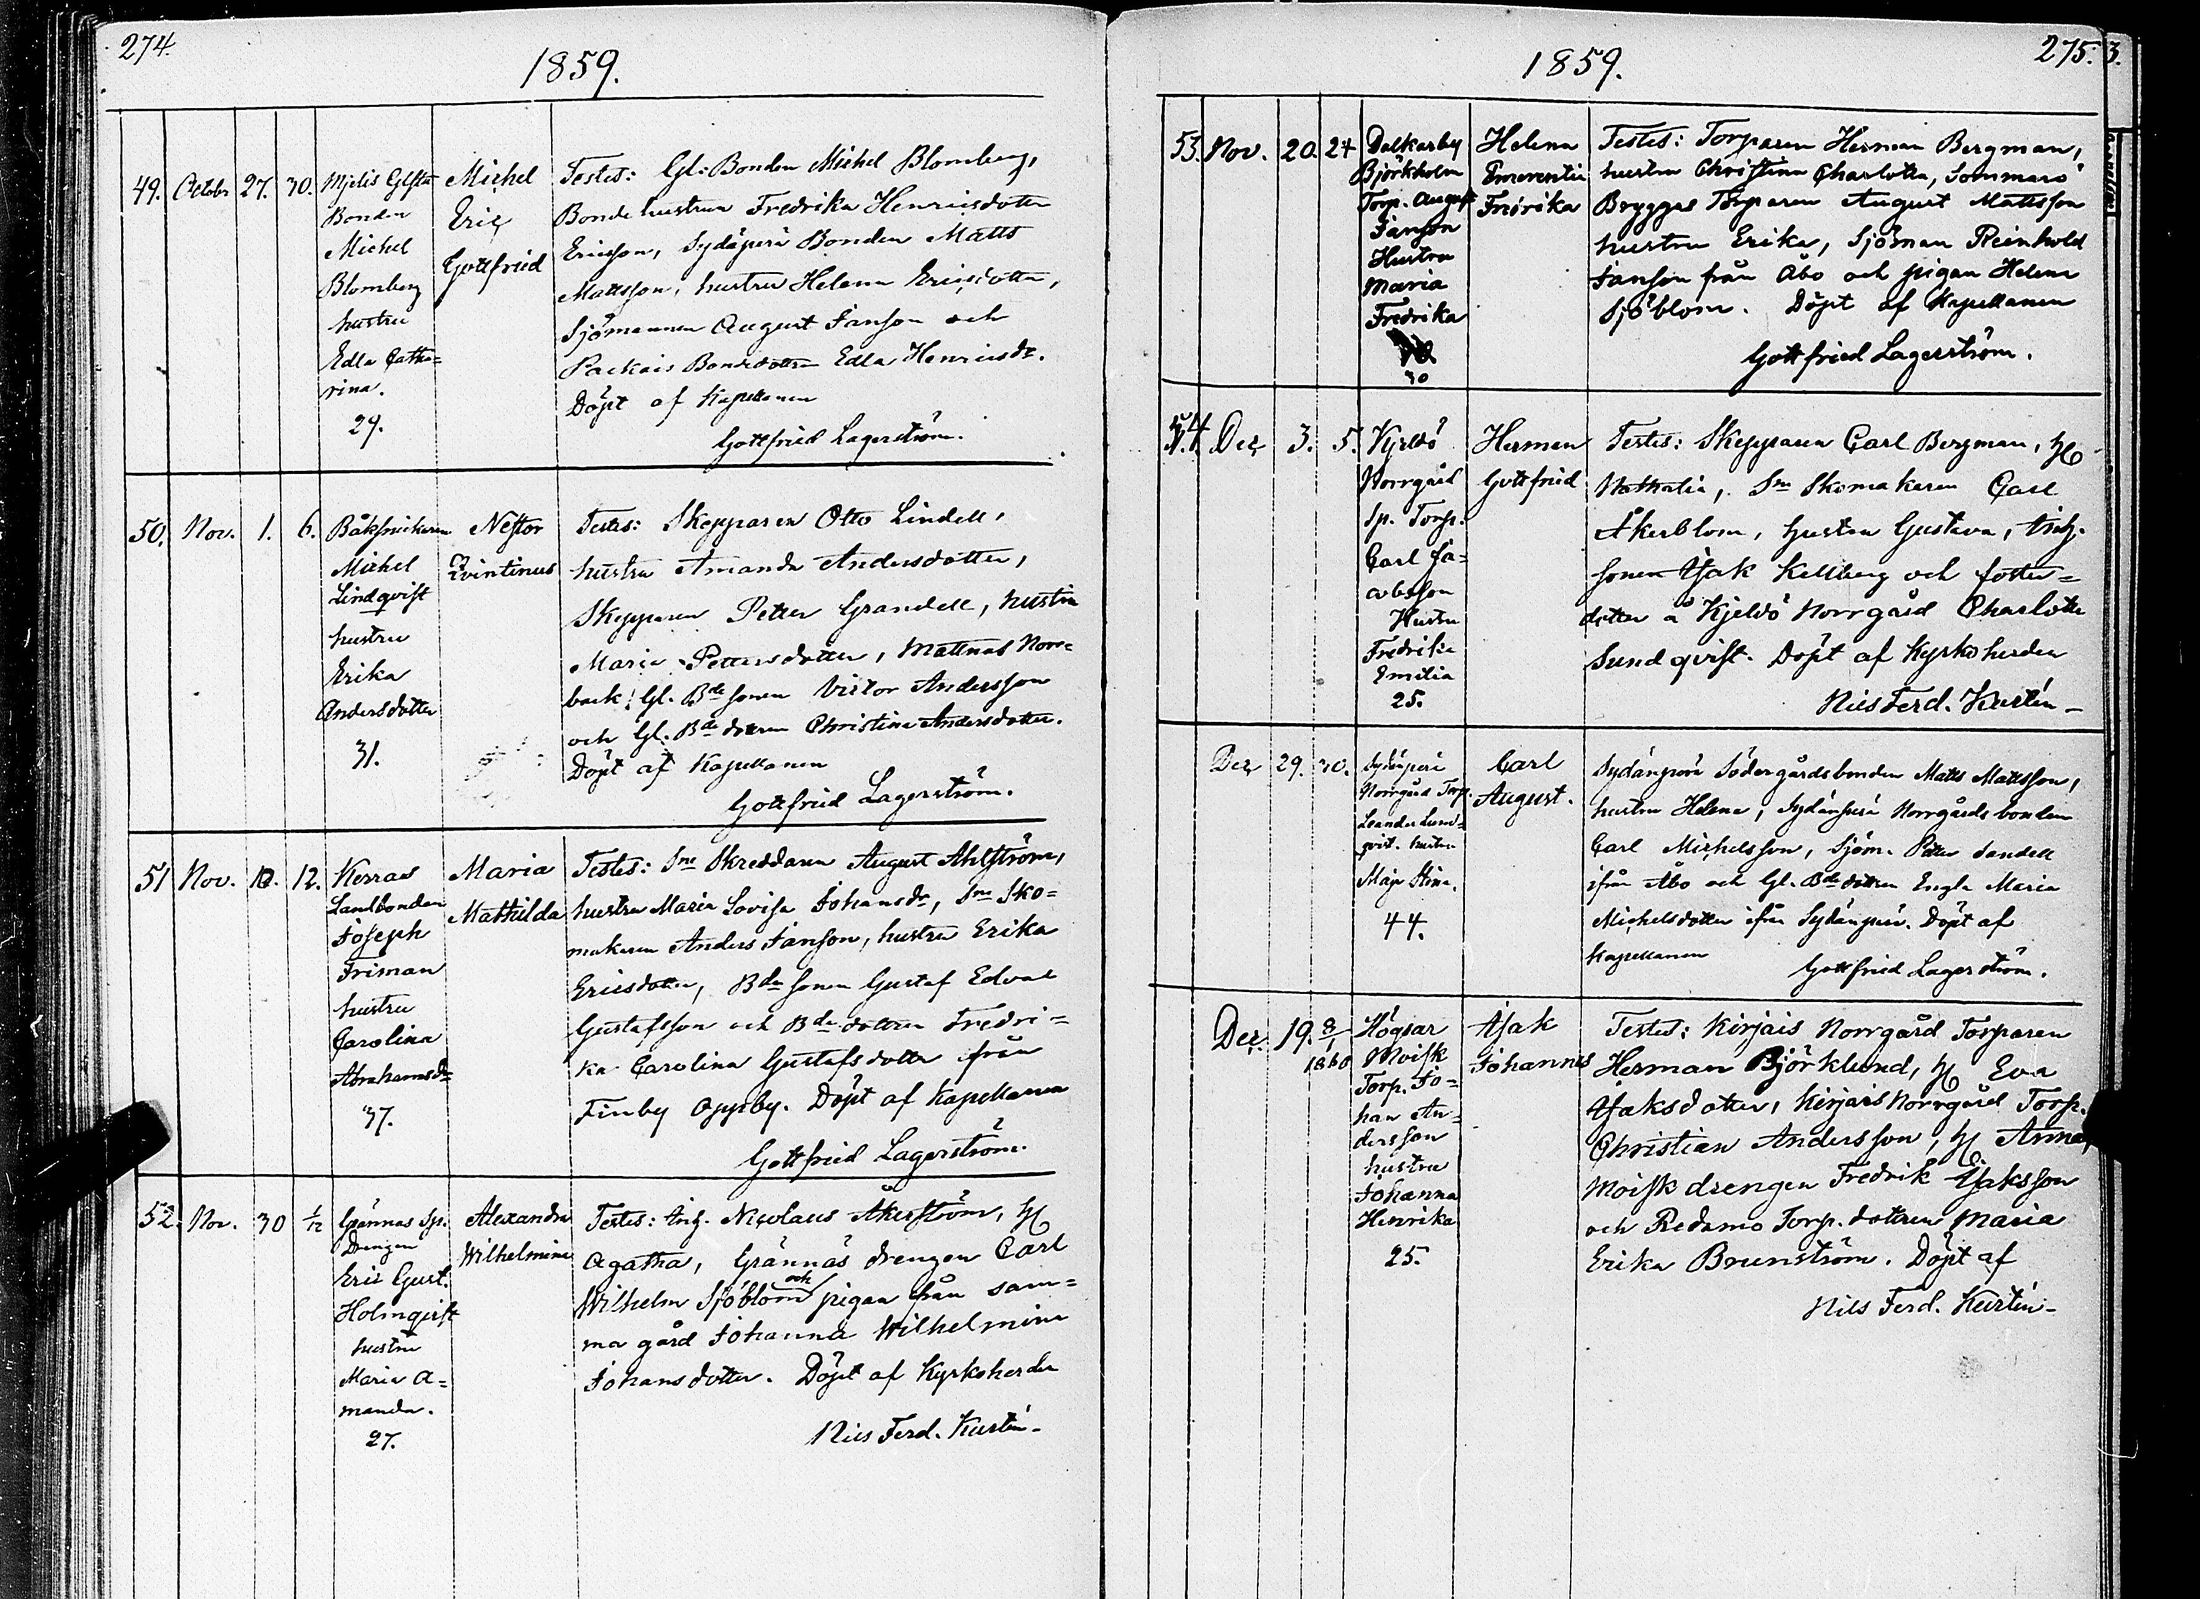 274.
1859.
49. Octobr 27. 30.
Mjelis Glfsta
Bonden
Michel
Blomberg
hustru
Edla Catha=
rina.
29.
Michel
Eric
Gottfried
Testes: Gl. Bonden Michel Blomberg,
Bonde hustrun Fredrika Henricsdotter
Ericsson, Sydäperä Bonden Matts
Mattsson, hustru Helena Ericsdotter,
Sjömannen August Janson och
Packais Bondedottren Edla Henricsdr.
Döpt af Kapellanen
Gottfried Lagerström.
50. Nov. 1. 6.
Båkfyrkaren
Michel
Lindqvist
hustru
Erika
Andersdotter
31.
Nestor
Qvintinus
Testes: Skepparen Otto Lindell,
hustru Amanda Andersdotter,
Skepparen Petter Grandell, hustru
Maria Pettersdotter, Mattnas Norr=
back Gl. Bde sonen Victor Andersson
och Gl. Bde dottren Christina Andersdotter.
Döpt af Kapellanen
Gottfried Lagerström.
51 Nov. 12.
Kerraas
Landbonden
Joseph
Friman
hustru
Carolina
Abrahamsdr
37.
Maria
Mathilda
Testes: Sne Skreddaren August Ahlström,
hustru Maria Lovisa Johansdr, Sne Sko=
makaren Anders Janson, hustru Erika
Ericsdotter, Bde sonen Gustaf Edvar
Gustafsson och Bde dottren Fredri=
ka Carolina Gustafsdotter från
Finby Oppsby. Döpt af Kapellanen
Gottfried Lagerström.
52. Nov. 30 1/12
Grännas Sp.
Drengen
Eric Gust.
Holmqvist
hustru
Maria A=
manda.
27.
Alexandra
Wilhelmina
Testes: Inh. Nicolaus Åkerström, H
Agatha, Grännäs drengen Carl
Wilhelm Sjöblom och pigan från sam=
ma gård Johanna Wilhelmina
Johansdotter. Döpt af Kyrkoherden
Nils Ferd. Kurtén
275.
3.
1859.
53. Nov. 20. 24
Dalkarby
Björkholm
Torp. August
Janson
Hustru
Maria
Fredrika
30
Helena
Emerentia
Fredrika
Testes: Torparen Herman Bergman,
hustru Christina Charlotta, Sommarö
Bryggas Torparen August Mattsson
hustru Erika, Sjöman Reinhold
Janson från Åbo och pigan Helena
Sjöblom. Döpt af Kapellanen
Gottfried Lagerström.
54. Dec 3. 5.
Kjeldö
Norrgård
Sp. Torp.
Carl Ja=
cobsson
Hustru
Fredrika
Emilia
25.
Herman
Gottfried
Testes: Skepparen Carl Bergman, H
Nathalia, Sne Skomakaren Carl
Åkerblom, hustru Gustava, Inh.
sonen Isak Kellberg och foster=
dotter å Kjeldö Norrgård Charlotta
Sundqvist. Döpt af Kyrkoherden
Nils Ferd. Kurtén
Dec 29. 30.
Sydänperä
Norrgård Torp.
Leander Lund=
qvist. hustru
Maja Stina.
44.
Carl
August.
Sydänperä Södergårdsbonden Matts Mattsson,
hustru Helena, Sydänperä Norrgårds bonden
Carl Michelsson, Sjöm. Petter Sandell
ifrån Åbo och Gl. Bde dottren Engla Maria
Michelsdotter ifrån Sydänperä. Döpt af
Kapellanen
Gottfried Lagerström.
Dec. 19. 8/1
1860
Högsar
Moisk
Torp. Jo=
han An=
dersson
hustru
Johanna
Henrika
25.
Isak
Johannes
Testes: Kirjais Norrgård Torparen
Herman Björklund, H Eva
Isaksdotter, Kirjais Norrgård Torp.
Christian Andersson, H. Anna,
Moisk drengen Fredrik Isaksson
och Redamo Torp. dottren Maria
Erika Brunström. Döpt af
Nils Ferd. Kurtén